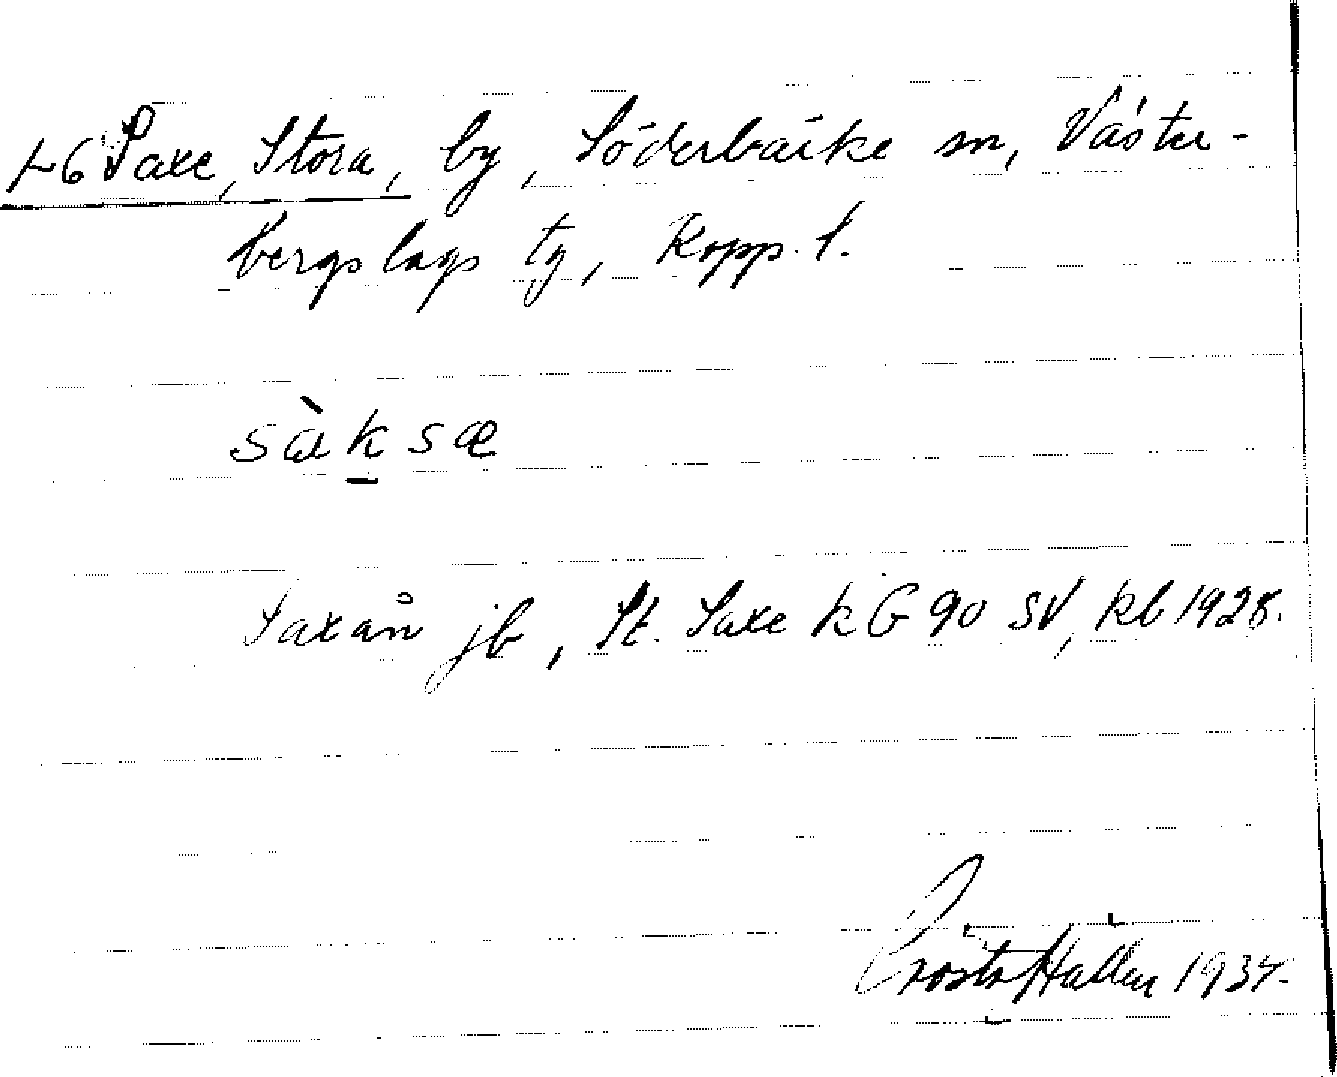 46 Saxe, Stora, by, Söderbärke sn, Väster-
bergslags tg, Kopp. l.
sàksæ
Saxån jb, St. Saxe kG 90 SV, kb 1928.
Gösta Hallén 1934.